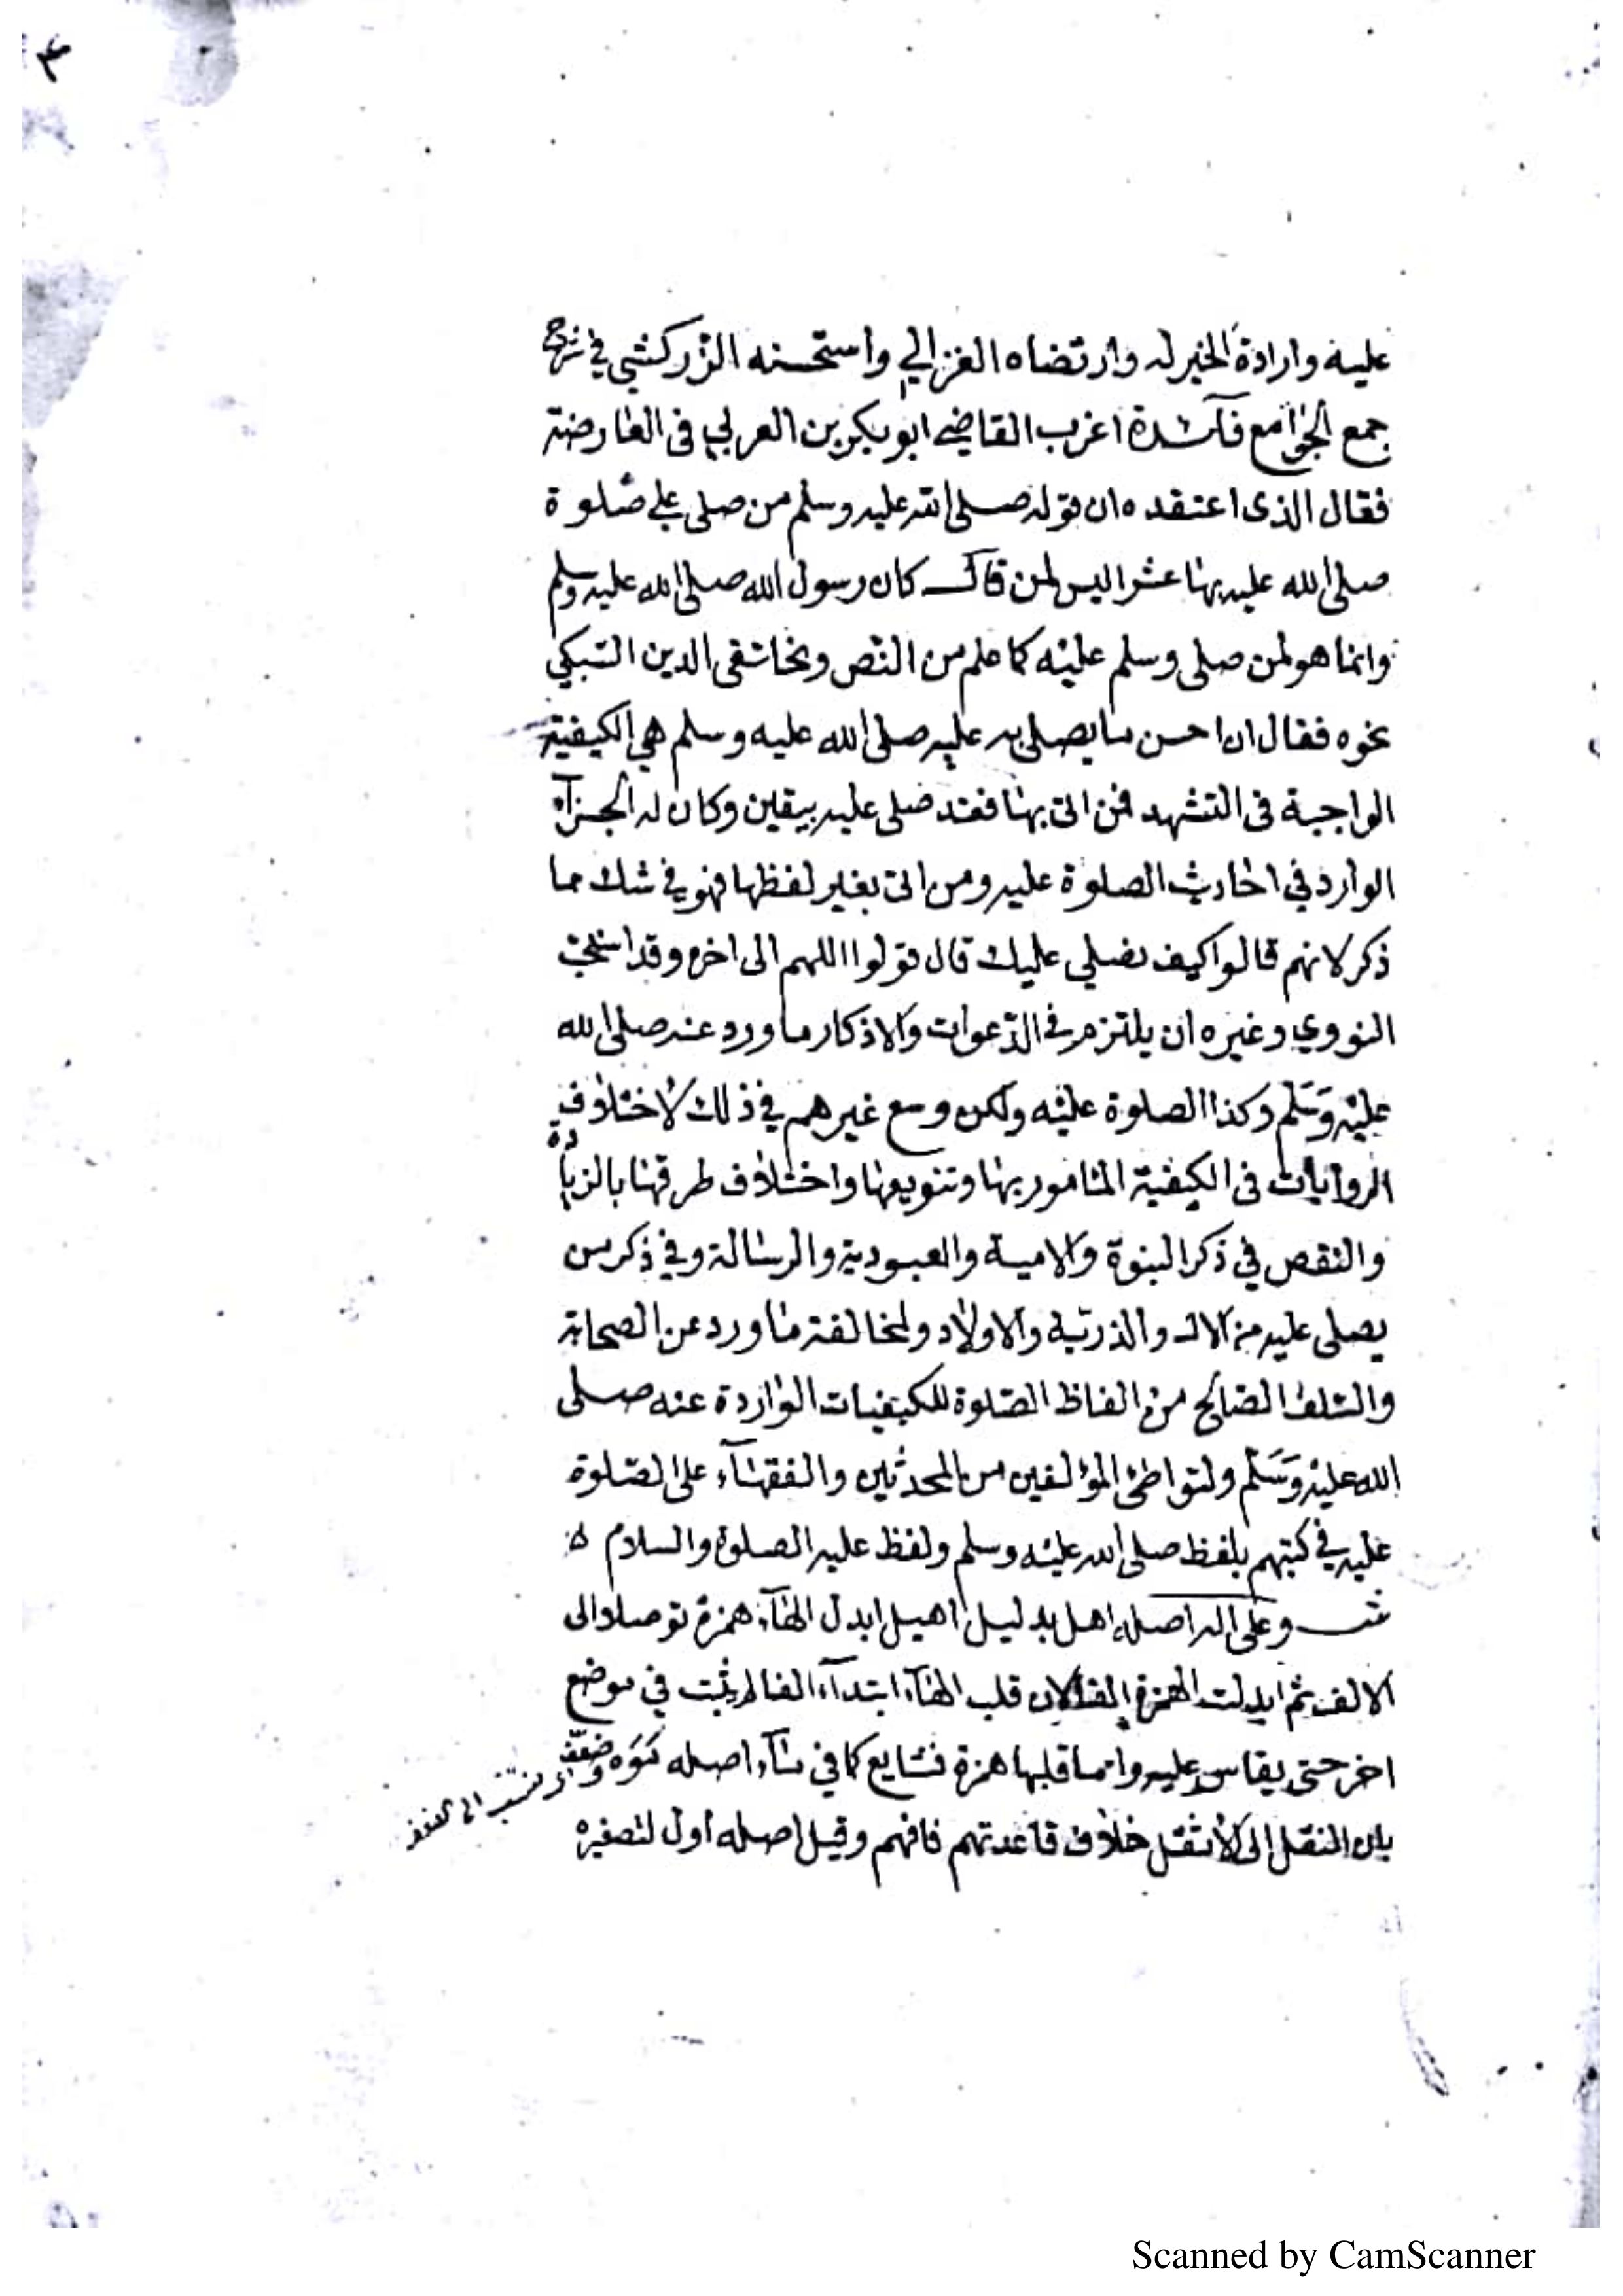 ٣
عليه وارادة الخير له وارتضاه الغزالي واستحسنه الزركشي في شرح
جمع الجوامع فآئدة اغرب القاضي ابو بكر بن العربي في العارضة
فقال الذى اعتقده ان قوله صلى الله عليه وسلم من صلى علي صلوة
صلى الله عليه بها عشرا ليس لمن قال كان رسول الله صلى الله عليه وسلم
وانما هو لمن صلى وسلم عليه كما علم من النص ونحا تقى الدين السبكي
نحوه فقال ان احسن ما يصلى به عليه صلى الله عليه وسلم هي الكيفية
الواجبة فى التشهد فمن اتى بها فقد صلى عليه بيقين وكان له الجزآء
الوارد في احاديث الصلوة عليه ومن اتى بغير لفظها فهو في شك مما
ذكر لانهم قالوا كيف نصلي عليك قال قولوا اللهم الى اخره وقد استحب
النووي وغيره ان يلتزم في الدعوات والاذكار ما ورد عنه صلى الله
عليه وسلم وكذا الصلوة عليه ولكن وسع غيرهم في ذلك لاختلاف
الروايات فى الكيفية المامور بها وتنويعها واختلاف طرقها بالزيادة
والنقص في ذكر النبوة والامية والعبودية والرسالة وفي ذكر من
يصلى عليه من الال والذرية والاولاد ولمخالفة ما ورد عن الصحابة
والسلف الصالح من الفاظ الصلوة للكيفيات الواردة عنه صلى
الله عليه وسلم ولتواطئ المؤلفين من المحدثين والفقهآء على الصلوة
عليه في كتبهم بلفظ صلى الله عليه وسلم ولفظ عليه الصلوة والسلام
ش وعلى اله اصله اهل بدليل اهيل ابدل الهآء همزة توصلا الى
الالف ثم ابدلت الهمزة الفا لان قلب الهآء ابتدآء الفا لم يثبت في موضع
اخر حتى يقاس عليه واما قلبها همزة فشايع كما في مآء اصله مَوَه وضعّف
بان النقل الى الاثقل خلاف قاعدتهم فافهم وقيل اصله أول لتصغيره
Scanned by CamScanner